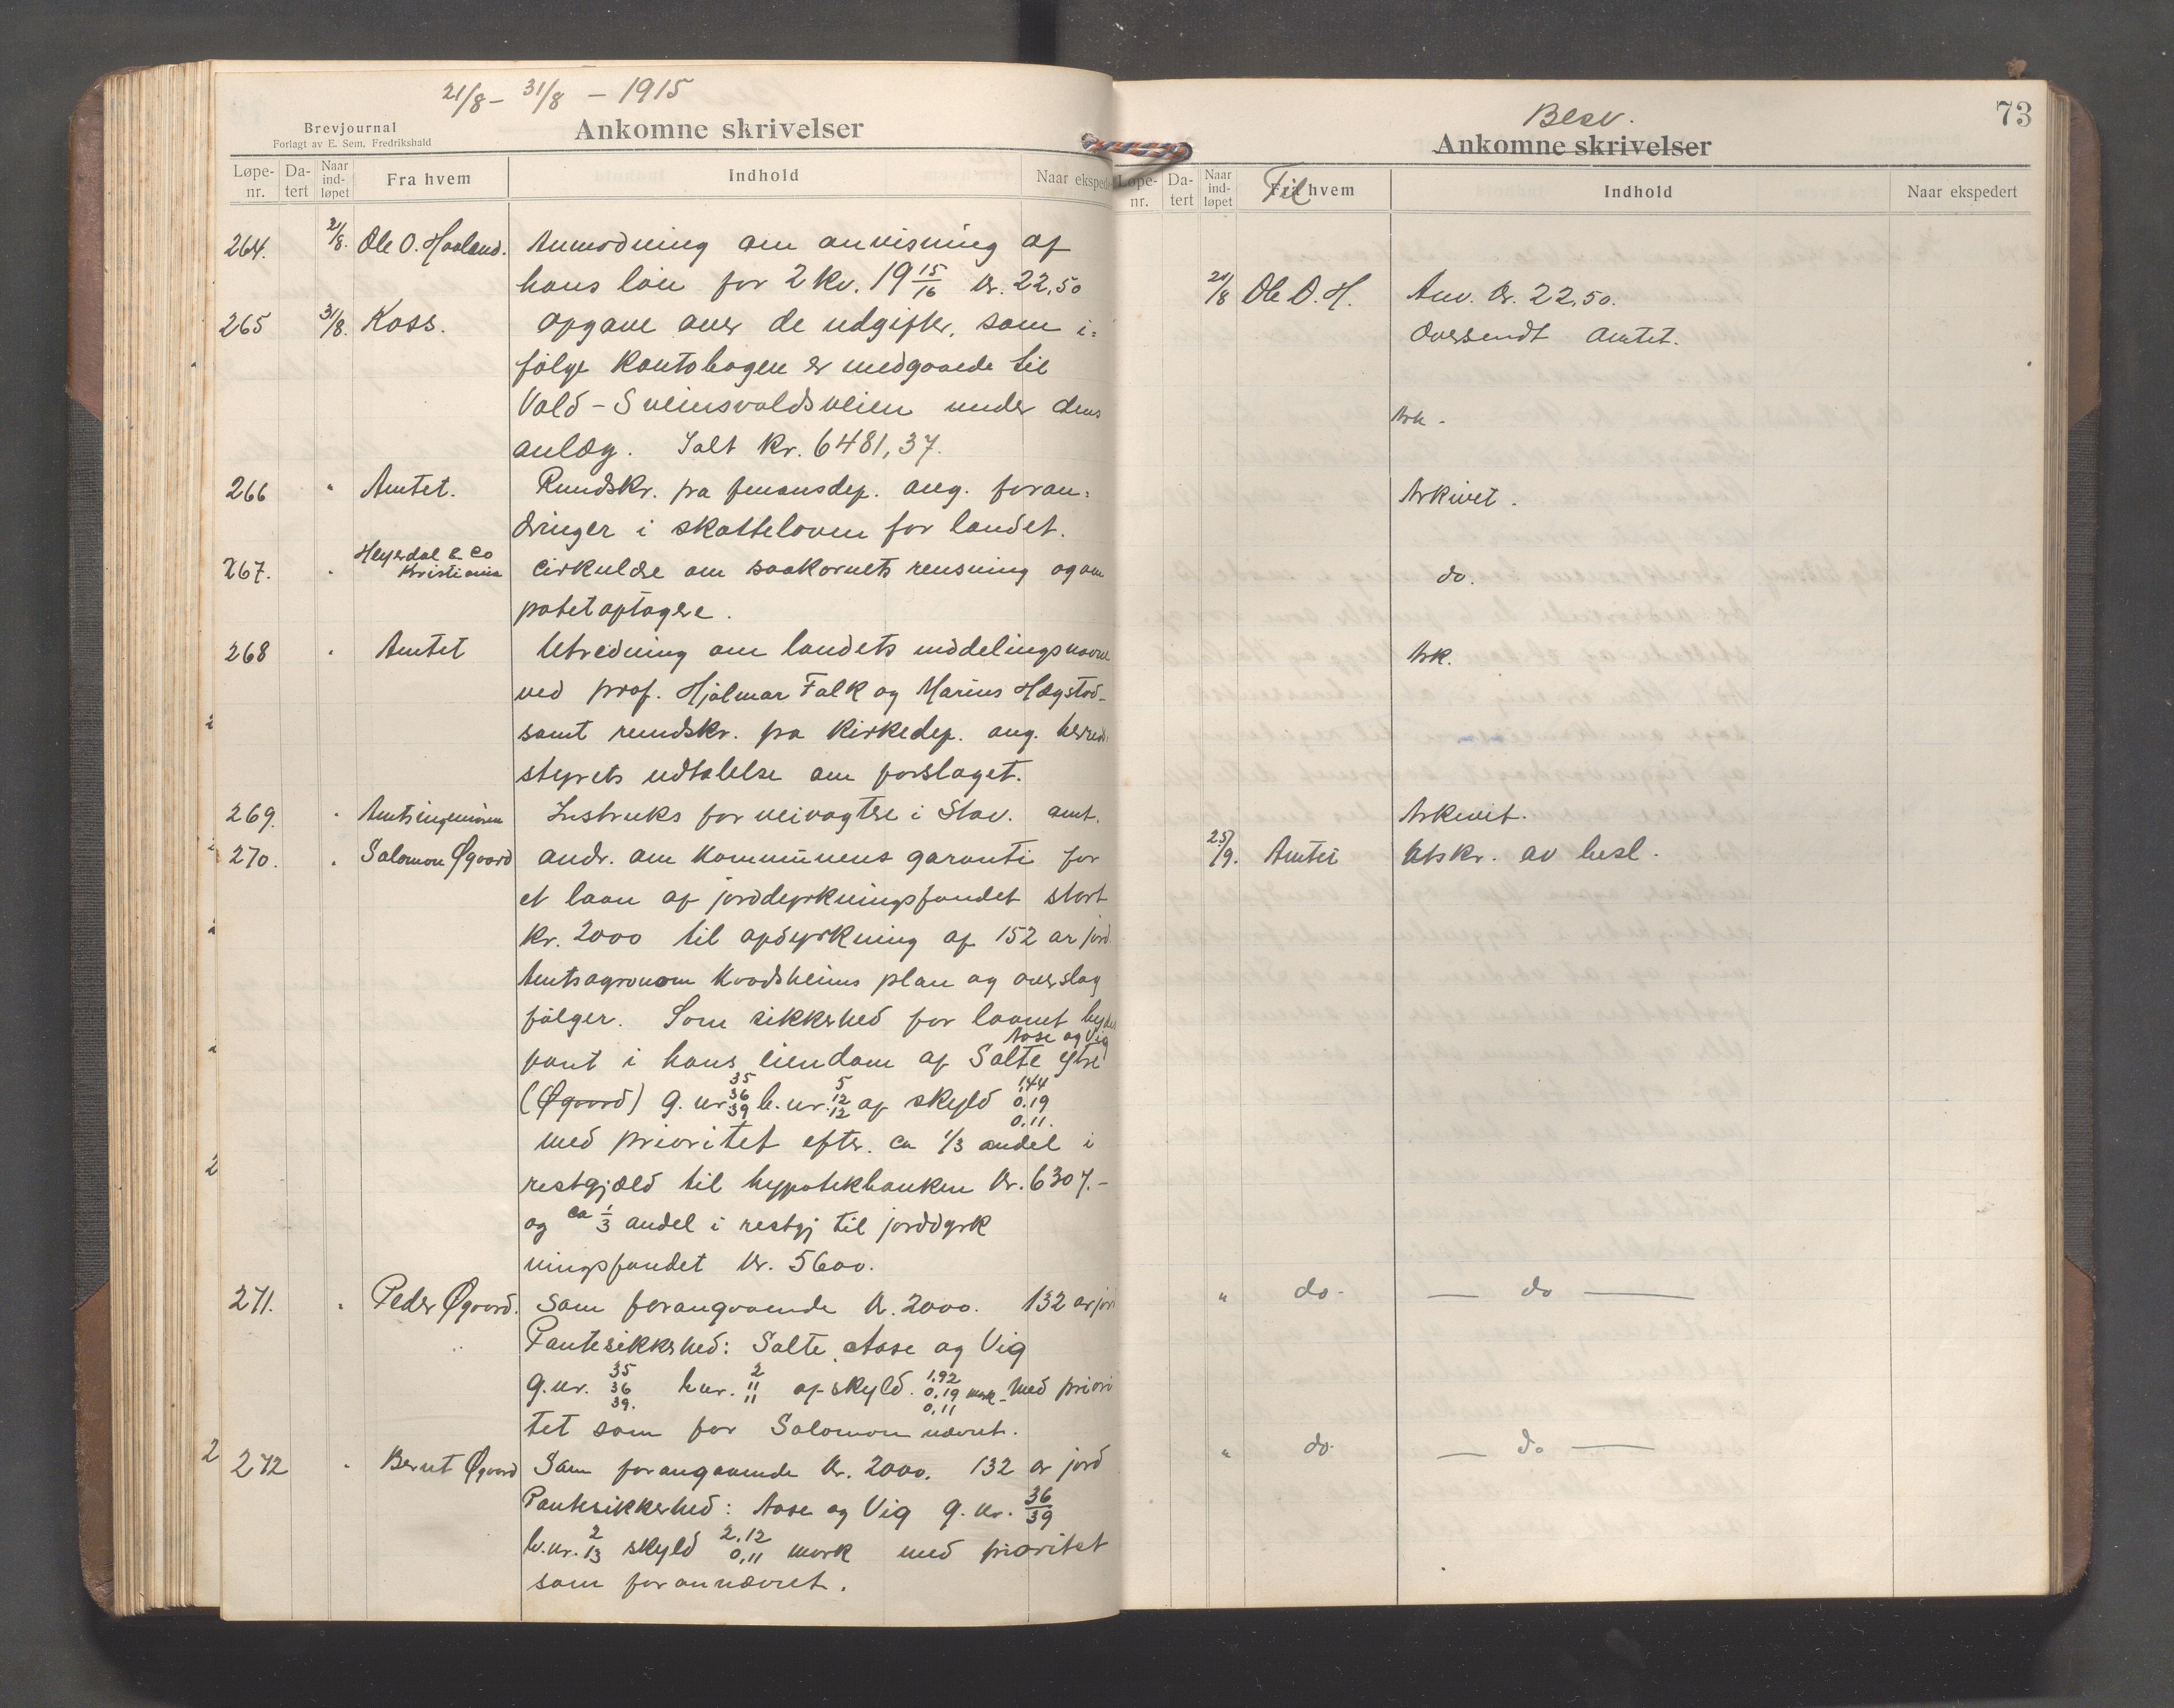 21/8 - 31/8 - 1915
Brevjournal
Forlagt av E. Sem, Fredrikshald
Ankomne skrivelser
Løpe-nr. Da-tert Naar ind-løpet Fra hvem Indhold Naar eksped
264. 21/8. Ole O. Haaland. Anmodning om anvisning af
hans løn for 2 kv. 19 15/16 Kr. 22,50
265 31/8. Kass. Opgave over de udgifter, som i=
følge Kontobogen er medgaaede til
Vold - Sveinsvoldsveien under dens
anlæg. Ialt Kr. 6481,37.
266 " Amtet. Rundskr. fra finansdep. ang. foran=
dringer i skatteloven for landet.
267. " Heyerdal & Co Kristiania Cirkulære om saakornets rensning og om
potetoptagere.
268 " Amtet Utredning om landets inddelingsnavne
ved prof. Hjalmar Falk og Marius Hægstad
samt rundskr. fra Kirkedep. ang. herreds
styrets udtalelse om forslaget.
269. " Amtsingeniøren Instruks for veivogtere i Stav. amt.
270. " Salomon Øgaard andr. om Kommunens garanti for
et laan af jorddyrkningsfondet stort
Kr. 2000 til opdyrkning af 152 ar jord
Amtsagronom Kvadsheims plan og overslag
følger. Som sikkerhed for laanet bydes
Aase og Vig
pant i hans eiendom af Salte ytre
(Øgaard) g. nr 35 36 39 b. nr. 5 12 12 af skyld 1,44 0,19 0,11.
med prioritet efter. ca 1/3 andel i
restgjæld til hypotekbanken Kr. 6307.-
og ca 1/3 andel i restgj til jorddyrk
ningsfondet Kr. 5600.
271. " Peder Øgaard. Som foranganende Kr. 2000. 132 ar jord
Pantesikkerhed: Salte, Aase og Vig
g. nr. 35 36 39. b nr. 2 11 11 af skyld. 1,92 0,19 0,11 mark - med priori
tet som for Salomon nævnt.
272 " Bernt Øgaard Som forangaaende Kr. 2000. 132 ar jord
Pantesikkerhed: Aase og Vig g. nr. 36/39
b. nr. 2 13 skyld 2,12 0,11 mark med prioritet
som forannævnt.
73
Besv.
Ankomne skrivelser
Løpe-nr. Da-tert Naar ind-løpet Til hvem Indhold Naar ekspedert
21/8 Ole O. H. Anv. Kr. 22,50.
Oversendt Amtet.
Ark.
Arkivet.
do.
Ark.
Arkivet.
25/9. Amtet Utskr. av besl.
" do. — do —
" do. — do —